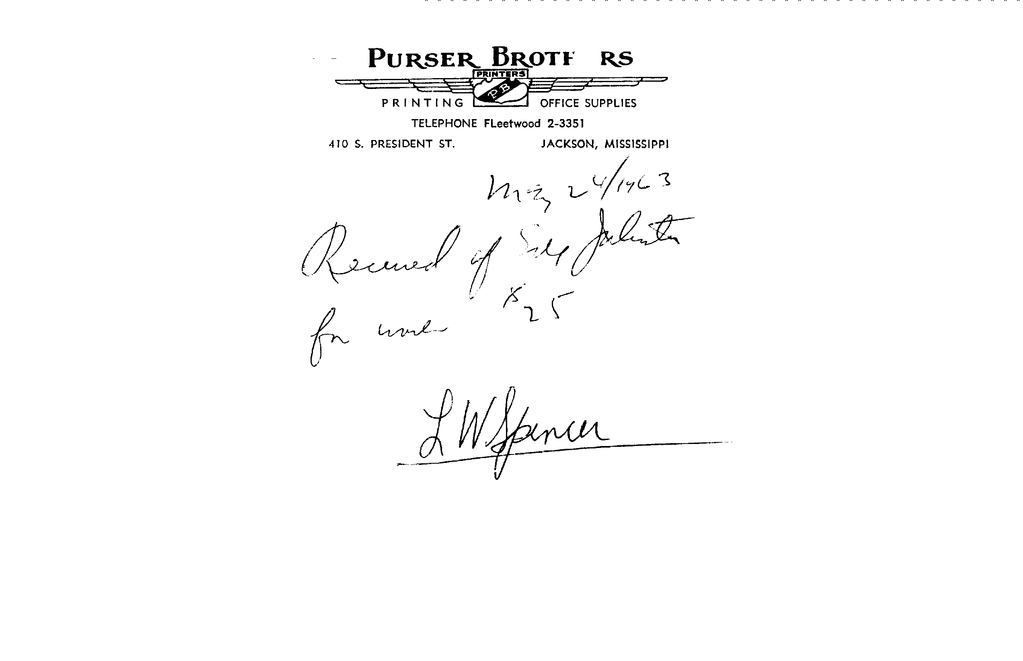 PURSER BROTHERS
PRINTERS
PB
PRINTING OFFICE SUPPLIES
TELEPHONE FLeetwood 2-3351
410 S. PRESIDENT ST. JACKSON, MISSISSIPPI
May 24/1963
Received of Johnston
$25
for work
L W Spencer